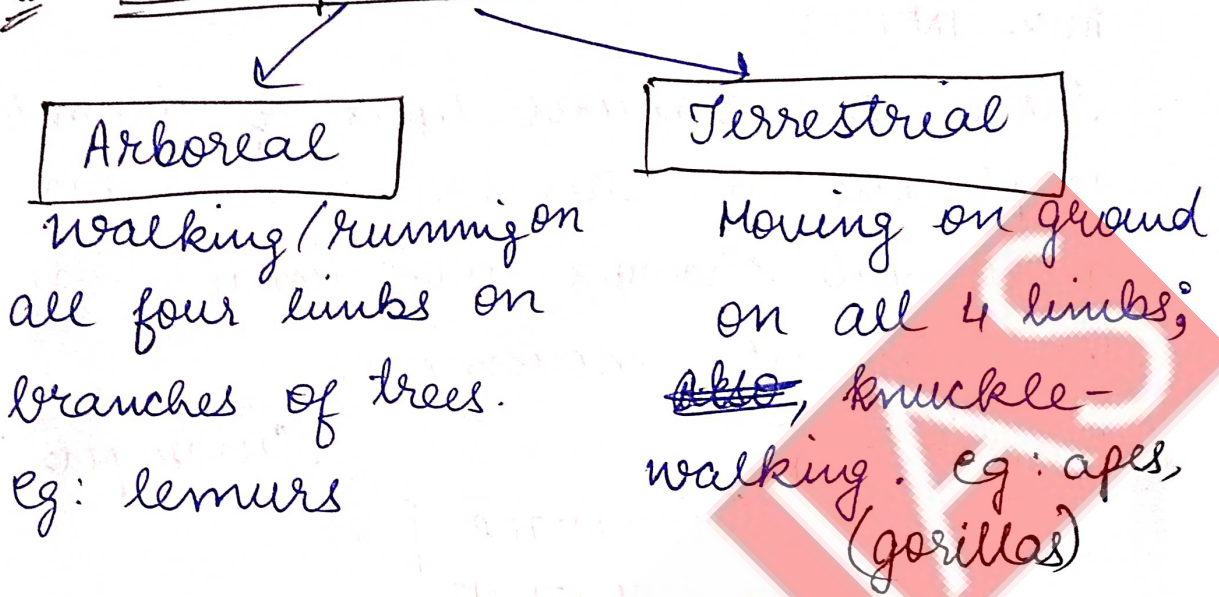 Arboreal
Walking/running on
all four limbs on
branches of trees.
eg: lemurs
Terrestrial
Moving on ground
on all 4 limbs;
also, knuckle-
walking. eg: apes,
(gorillas)
IAS